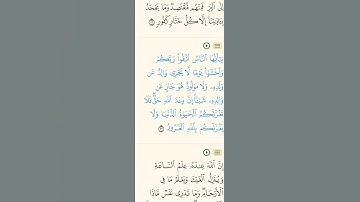 إِلَى ٱلْبَرِّ فَمِنْهُم مُّقْتَصِدٌ وَمَا يَجْحَدُ
بِـَٔايَـٰتِنَآ إِلَّا كُلُّ خَتَّارٍ كَفُورٍ
يَـٰٓأَيُّهَا ٱلنَّاسُ ٱتَّقُوا۟ رَبَّكُمْ
وَٱخْشَوْا۟ يَوْمًا لَّا يَجْزِى وَالِدٌ عَن
وَلَدِهِۦ وَلَا مَوْلُودٌ هُوَ جَازٍ عَن
وَالِدِهِۦ شَيْـًٔا إِنَّ وَعْدَ ٱللَّهِ حَقٌّ فَلَا
تَغُرَّنَّكُمُ ٱلْحَيَوٰةُ ٱلدُّنْيَا وَلَا
يَغُرَّنَّكُم بِٱللَّهِ ٱلْغَرُورُ
إِنَّ ٱللَّهَ عِندَهُۥ عِلْمُ ٱلسَّاعَةِ
وَيُنَزِّلُ ٱلْغَيْثَ وَيَعْلَمُ مَا فِى
ٱلْأَرْحَامِ وَمَا تَدْرِى نَفْسٌ مَّاذَا